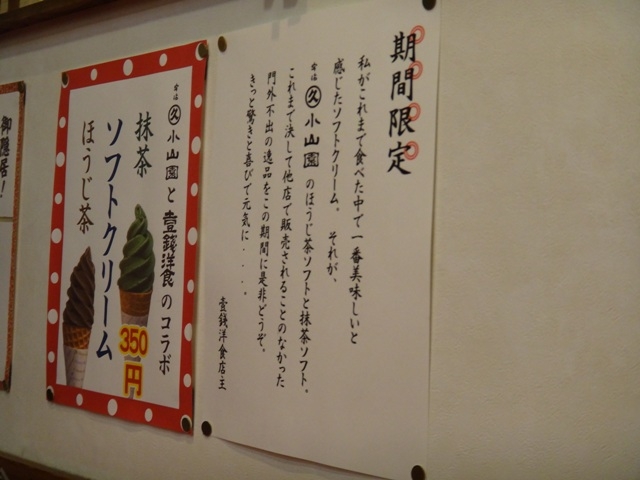 期間限定
私がこれまで食べた中で一番美味しいと
感じたソフトクリーム。それが、
㊈小山園のほうじ茶ソフトと抹茶ソフト。
これまで決して他店で販売されることのなかった
門外不出の逸品をこの期間に是非どうぞ。
きっと驚きと喜びで元気に・・・。
壹銭洋食店主
小山園と壹銭洋食のコラボ
抹茶
ソフトクリーム
ほうじ茶
350円
御隠居!